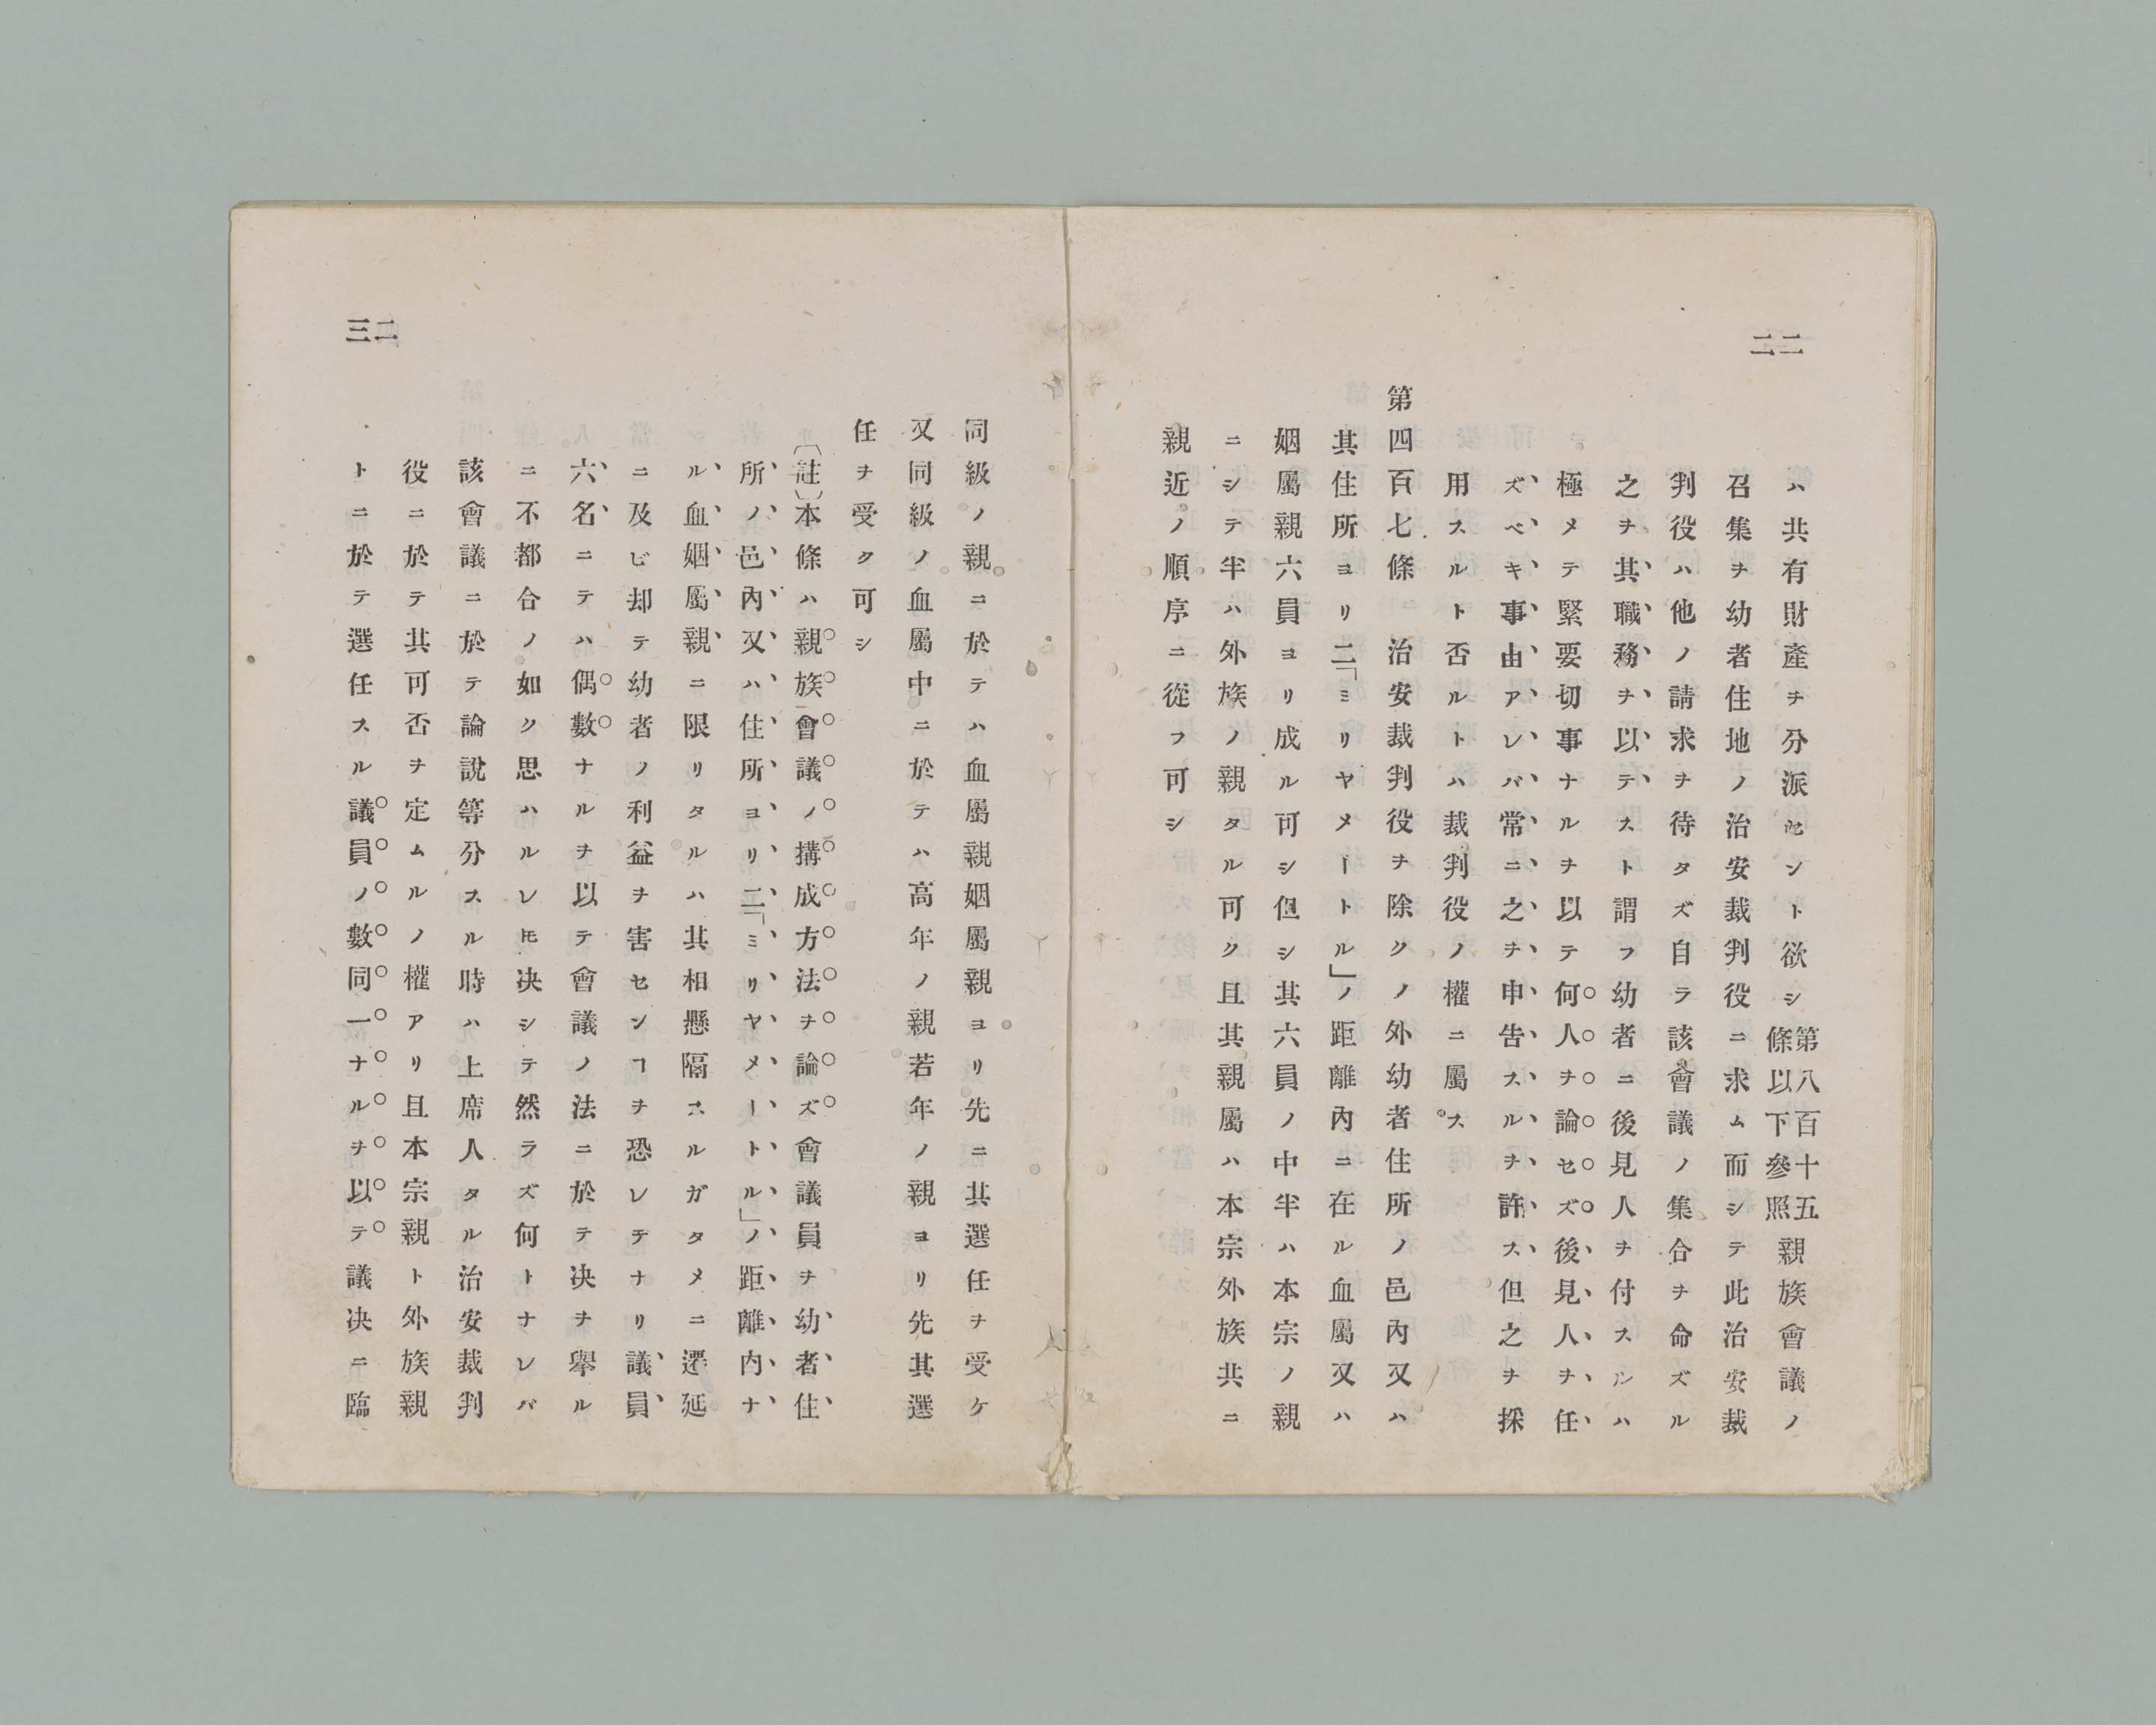 二二
ハ共有財產ヲ分派セント欲シ第八百十五條以下參照親族會議ノ
召集ヲ幼者住地ノ治安裁判役ニ求ム而シテ此治安裁
判役ハ他ノ請求ヲ待タズ自ラ該會議ノ集合ヲ命ズル
之ヲ其職務ヲ以テスト謂フ幼者ニ後見人ヲ付スルハ
極メテ緊要切事ナルヲ以テ何人ヲ論セズ後見人ヲ任
ズベキ事由アレバ常ニ之ヲ申告スルヲ許ス但之ヲ採
用スルト否ルトハ裁判役ノ權ニ屬ス
第四百七條 治安裁判役ヲ除クノ外幼者住所ノ邑內又ハ
其住所ヨリ二「ミリヤメートル」ノ距離內ニ在ル血屬又ハ
姻屬親六員ヨリ成ル可シ但シ其六員ノ中半ハ本宗ノ親
ニシテ半ハ外族ノ親タル可ク且其親屬ハ本宗外族共ニ
親近ノ順序ニ從フ可シ
二三
同級ノ親ニ於テハ血屬親姻屬親ヨリ先ニ其選任ヲ受ケ
又同級ノ血屬中ニ於テハ高年ノ親若年ノ親ヨリ先其選
任ヲ受ク可シ
〔註〕本條ハ親族會議ノ搆成方法ヲ論ズ會議員ヲ幼者住
所ノ邑內又ハ住所ヨリ二「ミリヤメートル」ノ距離內ナ
ル血姻屬親ニ限リタルハ其相懸隔スルガタメニ遷延
ニ及ビ却テ幼者ノ利益ヲ害センヿヲ恐レテナリ議員
六名ニテハ偶數ナルヲ以テ會議ノ法ニ於テ决ヲ擧ル
ニ不都合ノ如ク思ハルレ𪜈决シテ然ラズ何トナレバ
該會議ニ於テ論說等分スル時ハ上席人タル治安裁判
役ニ於テ其可否ヲ定ムルノ權アリ且本宗親ト外族親
トニ於テ選任スル議員ノ數同一ナルヲ以テ議决ニ臨